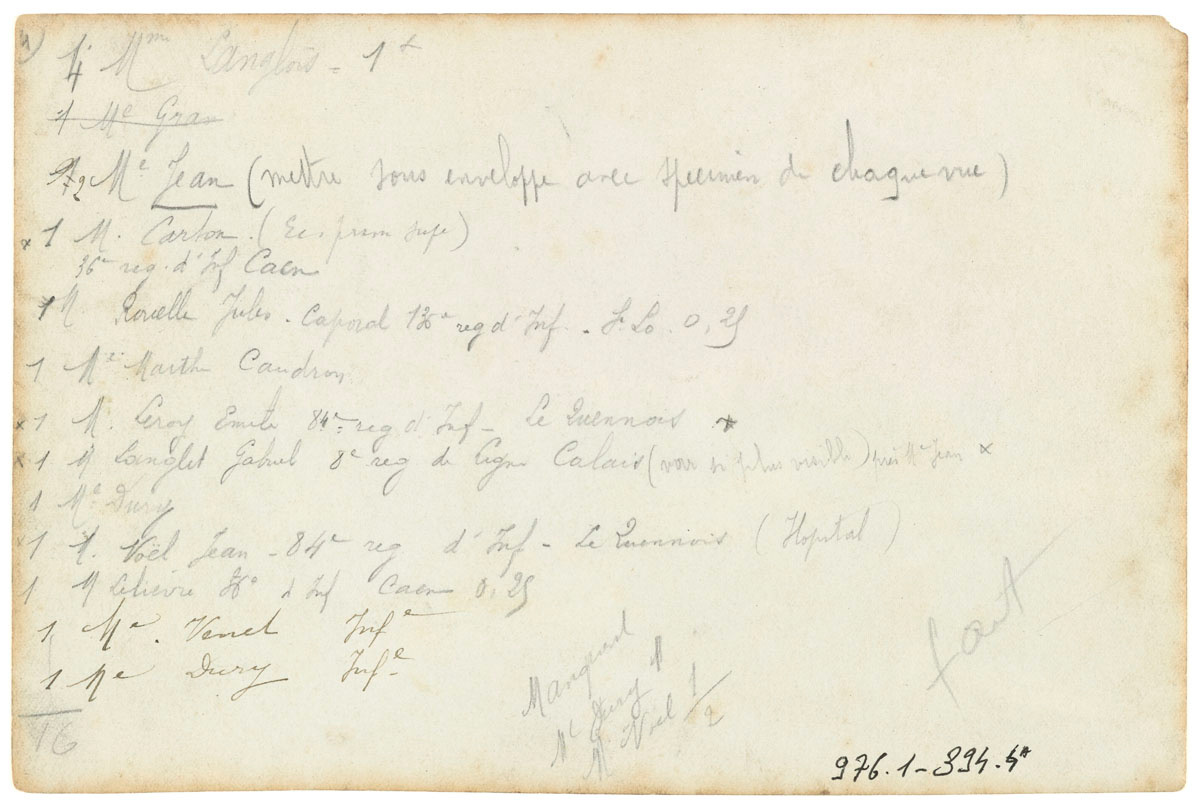 4)
4 Mme Langlois - 1 x
1 Me Gra
2 Me Jean (mettre sous enveloppe avec specimen de chaque vue)
x 1 M. Carton. (Ec. prim supe)
36e reg. d'Inf Caen
1 M Rouelle Jules - Caporal 136e reg d'Inf - St Lo. 0,25
1 Me Marthe Caudron
x 1 M. Leroy Emile 84e reg d'Inf - Le Quennois x
x 1 M Langlet Gabriel 8e reg de ligne Calais (voir si plus visible) près Me Jean x
1 Me Dury
x 1 M. Noël Jean - 84e reg d'Inf - Le Quennois (Hopital)
1 M Lelièvre 36e d'Inf Caen 0,25
1 Me. Venel Infe
1 Me Dury Infe
16
Manquent
Me Dury 1
M. Noël 1
2
fait
976.1-394.4A